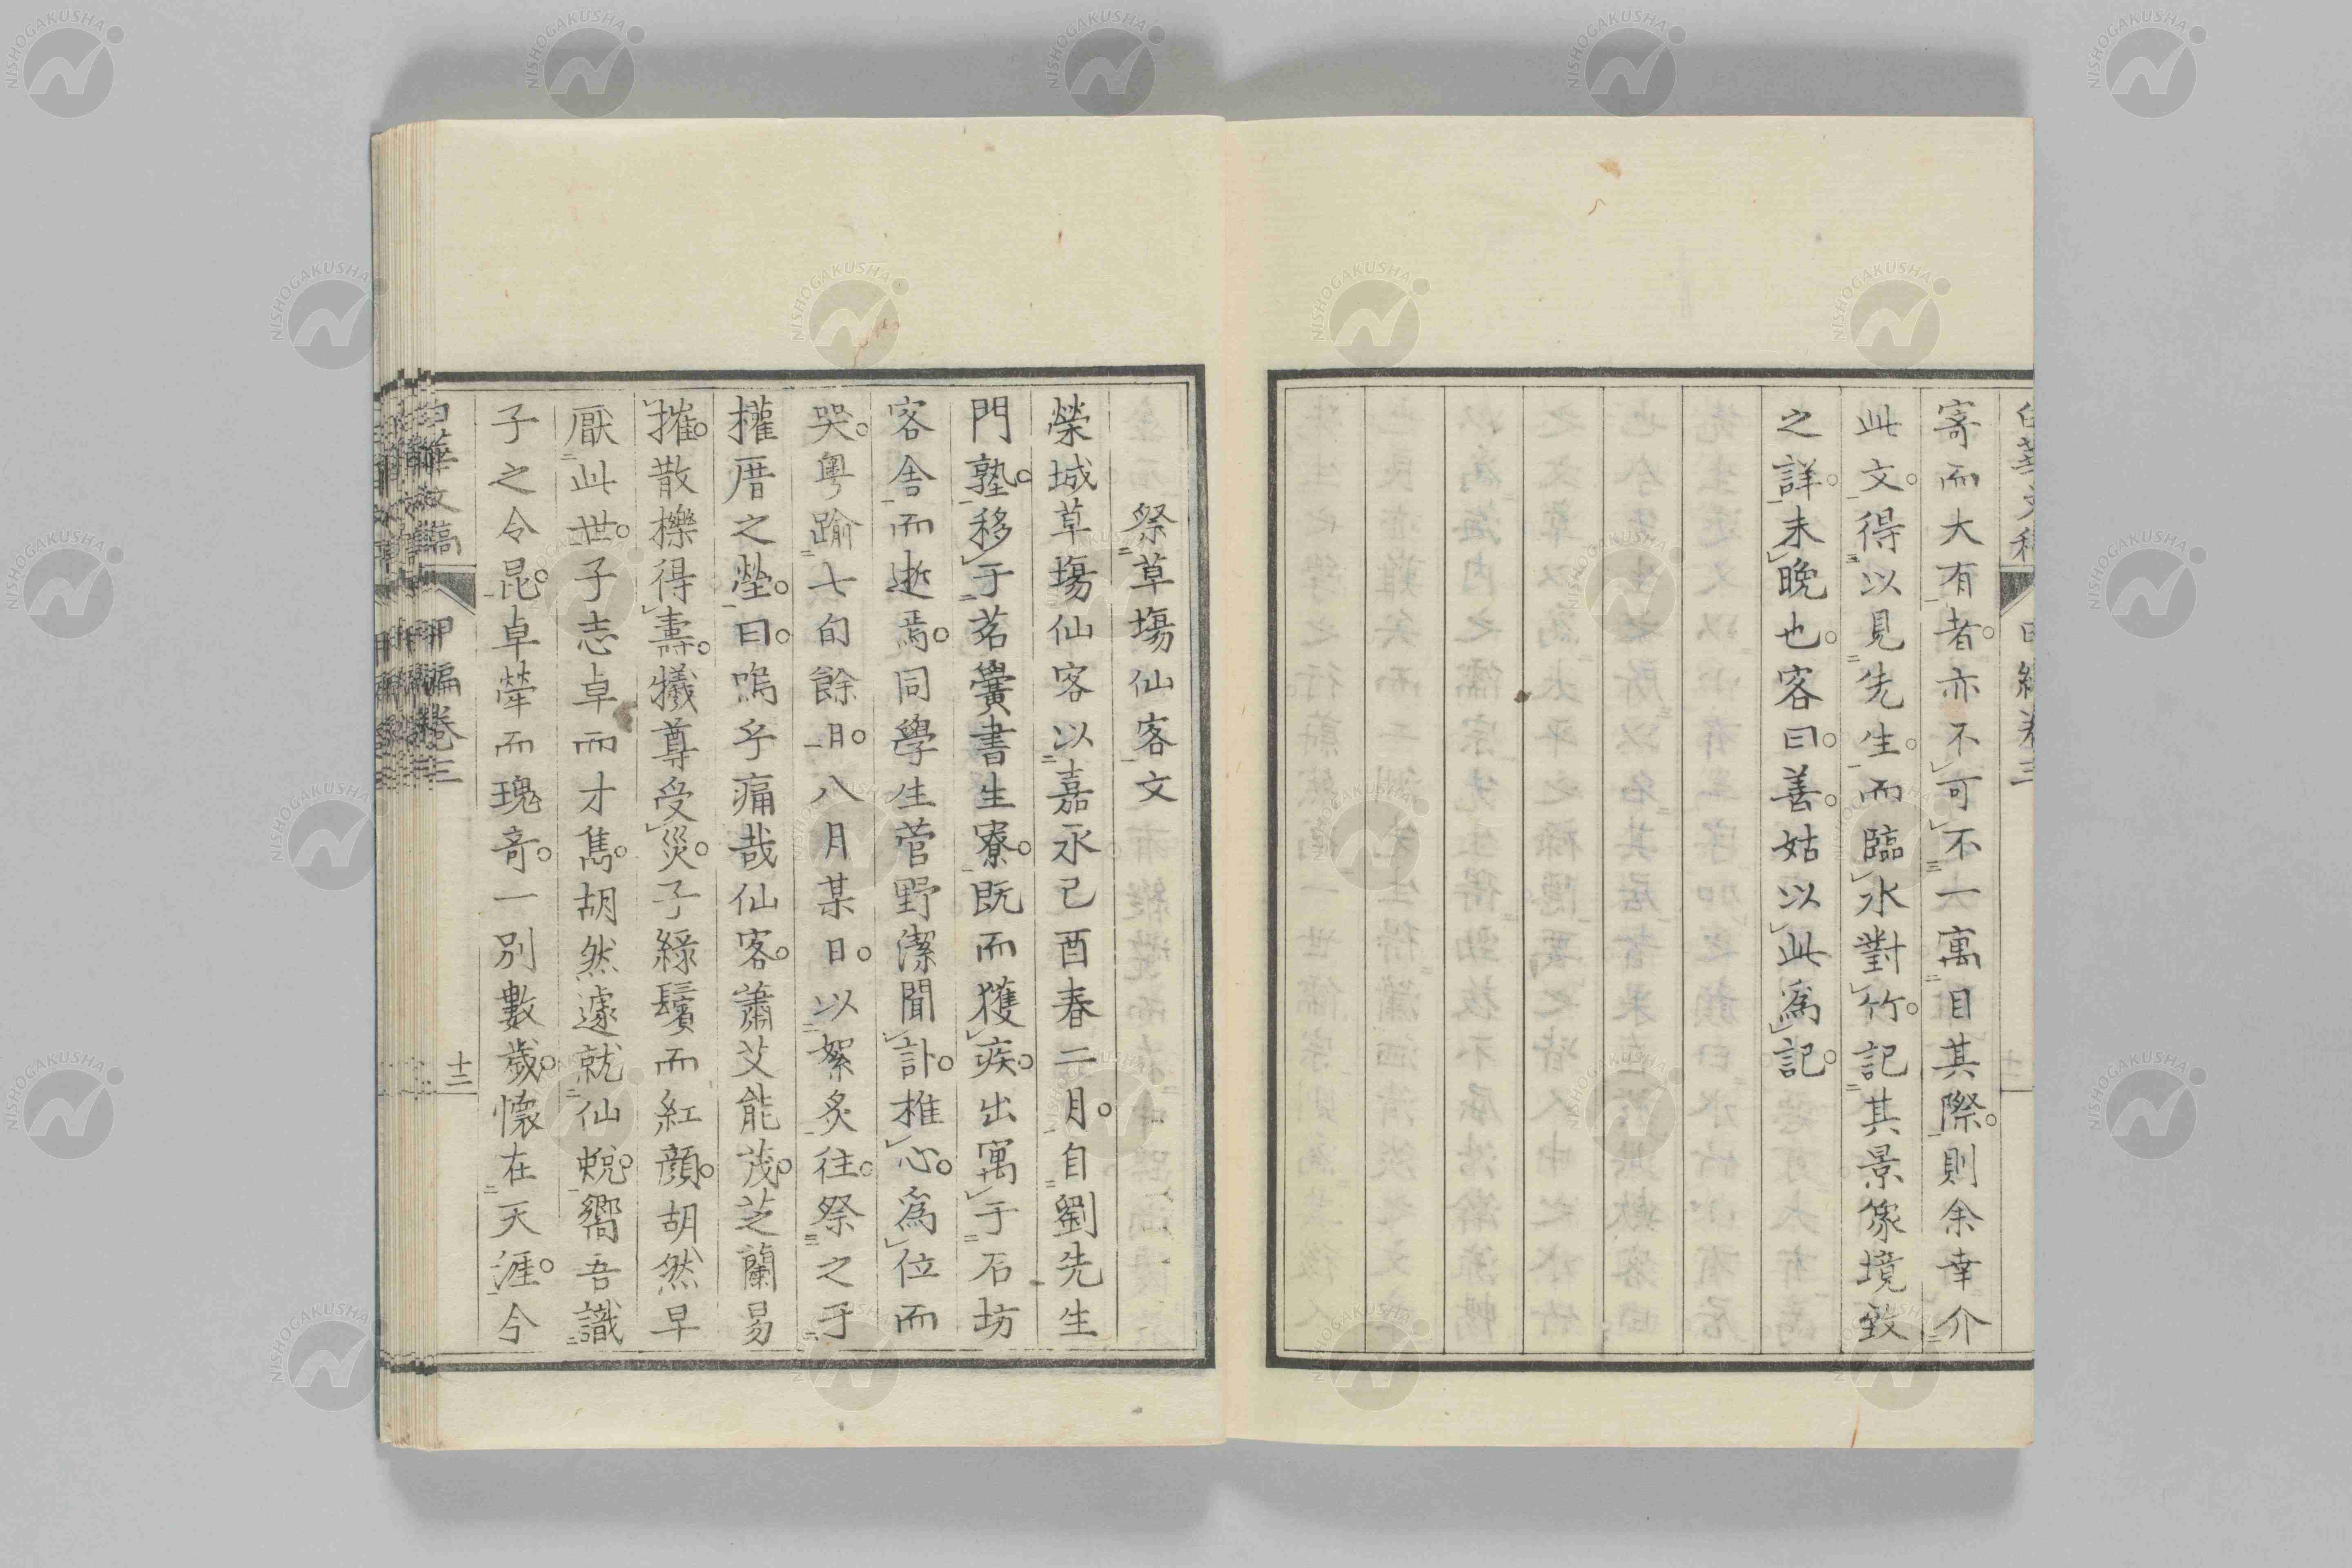 寄而大有者。亦不可不一寓目其際。則余幸介
此文。得以見先生。而臨水對竹。記其景象境致
之詳。未晚也。客曰。善。姑以此為記。
祭草塲仙客文
榮城草塲仙客以嘉永己酉春二月。自劉先生
門塾。移于茗黌書生寮。既而獲疾。出寓于石坊
客舎而逝焉。同學生菅野潔聞訃。椎心。為位而
哭。粤踰七旬餘。八月某日。以絮炙往。祭之于
權厝之塋。曰。嗚乎痛哉仙客。蕭艾能茂。芝蘭易
摧。散櫟得壽。犠尊受災。子綠鬢而紅顔。胡然早
厭此世。子志卓而才雋。胡然遽就仙蛻。嚮吾識
子之令昆。卓犖而瑰奇。一別數歳。懷在天涯。今
白華文稿 甲編卷三 十二
NISHOGAKUSHA